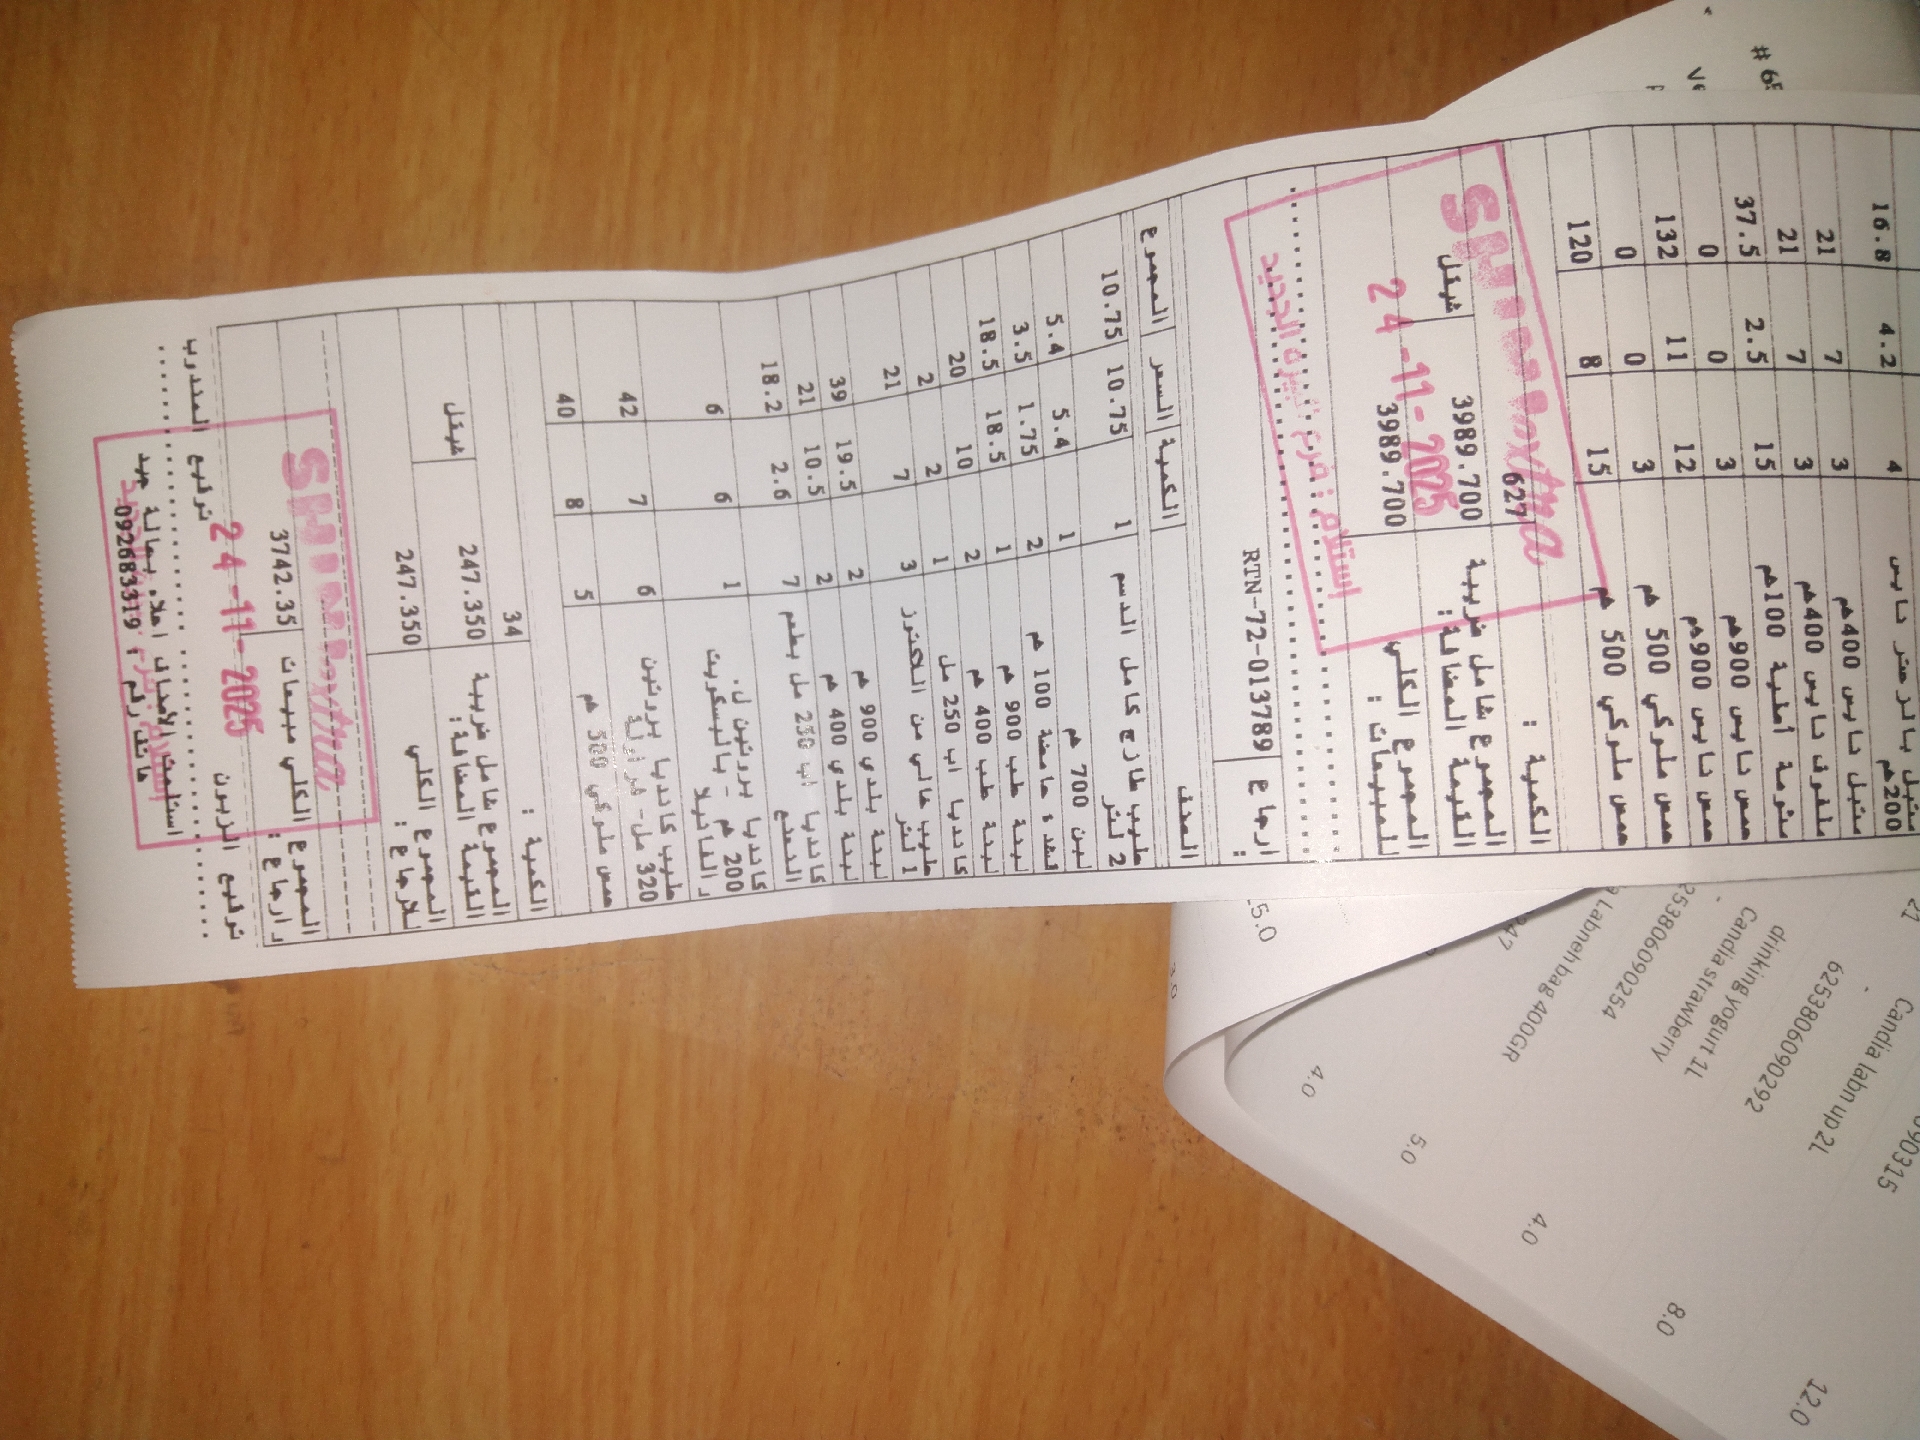 متبل بالزعتر نايس 200هم 4 4.2 16.8
متبل نايس 400هم 3 7 21
ملفوف نايس 400هم 3 7 21
مثومة أصلية 100هم 15 2.5 37.5
حمص نايس 900هم 3 0 0
حمص نايس 900هم 12 11 132
حمص ملوكي 500 هم 3 0 0
حمص ملوكي 500 هم 15 8 120
الكمية : 627
المجموع شامل ضريبة القيمة المضافة: 3989.700 شيقل
المجموع الكلي للمبيعات : 3989.700
Extra
24-11-2025
ارجاع : RTN-72-013789
الصنف الكمية السعر المجموع
حليب طازج كامل الدسم 2 لتر 1 10.75 10.75
لبن 700 هم 1 5.4 5.4
قشدة حامضة 100 هم 2 1.75 3.5
لبنة طب 900 هم 1 18.5 18.5
لبنة طب 400 هم 2 10 20
كانديا اب 250 مل 1 2 2
حليب خالي من اللاكتوز 1 لتر 3 7 21
لبنة بلدي 900 هم 2 19.5 39
لبنة بلدي 400 هم 2 10.5 21
كانديا اب 250 مل بطعم النعنع 7 2.6 18.2
كانديا بروتين ل. 200 هم - بالبسكويت و الفانيلا 1 6 6
حليب كانديا بروتين 320 مل- فراولة 6 7 42
حمص ملوكي 500 هم 5 8 40
الكمية : 34
المجموع شامل ضريبة القيمة المضافة: 247.350 شيقل
المجموع الكلي للارجاع : 247.350
المجموع الكلي مبيعات و ارجاع : 3742.35
Extra
24-11-2025
توقيع الزبون توقيع المندوب
استلمت الأصناف اعلاه بحالة جيد
هاتف رقم : 092683319
# 65
Labneh bag 400GR
253806090254
Candia strawberry
drinking yogurt 1L
6253806090292
Candia labn up 2L
090315
21
5.0
3.0
4.0
5.0
4.0
8.0
12.0